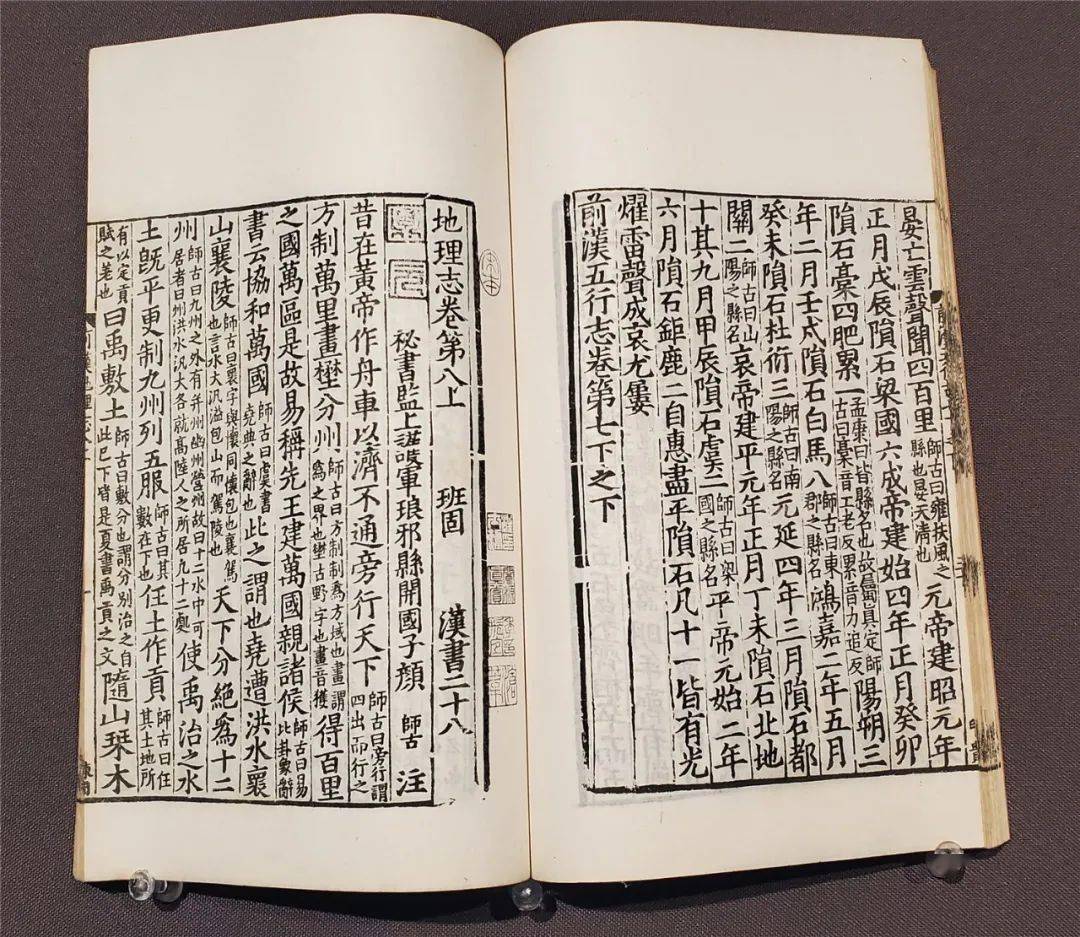 晏亡雲聲聞四百里師古曰雍扶風之縣也晏天清也元帝建昭元年
正月戊辰隕石梁國六成帝建始四年正月癸卯
隕石槀四肥累一孟康曰皆縣名也故屬真定師古曰槀音工老反累音力追反陽朔三
年二月壬戌隕石白馬八師古曰東郡之縣名鴻嘉二年五月
癸未隕石杜衍三師古曰南陽之縣名元延四年三月隕石都
關二師古曰山陽之縣名哀帝建平元年正月丁未隕石北地
十其九月甲辰隕石虞二師古曰梁國之縣名平帝元始二年
六月隕石鉅鹿二自惠盡平隕石凡十一皆有光
燿雷聲成哀尤屢
前漢五行志卷第七下之下
地理志卷第八上 班固 漢書二十八
秘書監上護軍琅邪縣開國子顏 師古 注
昔在黃帝作舟車以濟不通旁行天下師古曰旁行謂四出而行之
方制萬里畫壄分州師古曰方制制爲方域也畫謂爲之界也壄古野字也畫音獲得百里
之國萬區是故易稱先王建萬國親諸侯師古曰易比卦象辭
書云協和萬國師古曰虞書堯典之辭也此之謂也堯遭洪水襄
山襄陵師古曰襄字與懷同懷包也襄駕也言水大汎溢包山而駕陵也天下分絕爲十二
州師古曰九州之外有并州幽州營州故曰十二水中可居者曰州洪水汎大各就高陸人之所居九十二處使禹治之水
土旣平更制九州列五服師古曰其數在下也任土作貢師古曰任其土地所
有以定貢賦之差也曰禹敷土師古曰敷分也謂分別治之自此已下皆是夏書禹貢之文隨山栞木